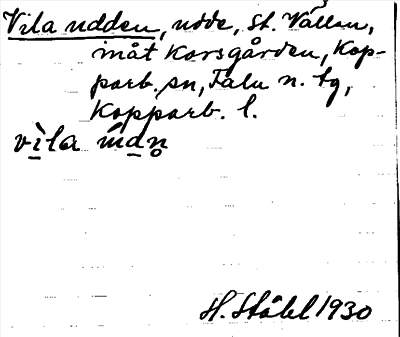 Vila udden, udde, St. Vällan,
inåt Korsgården, Kop-
parb. sn, Falu n. tg,
Kopparb. l.
vìla
H. Ståhl 1930